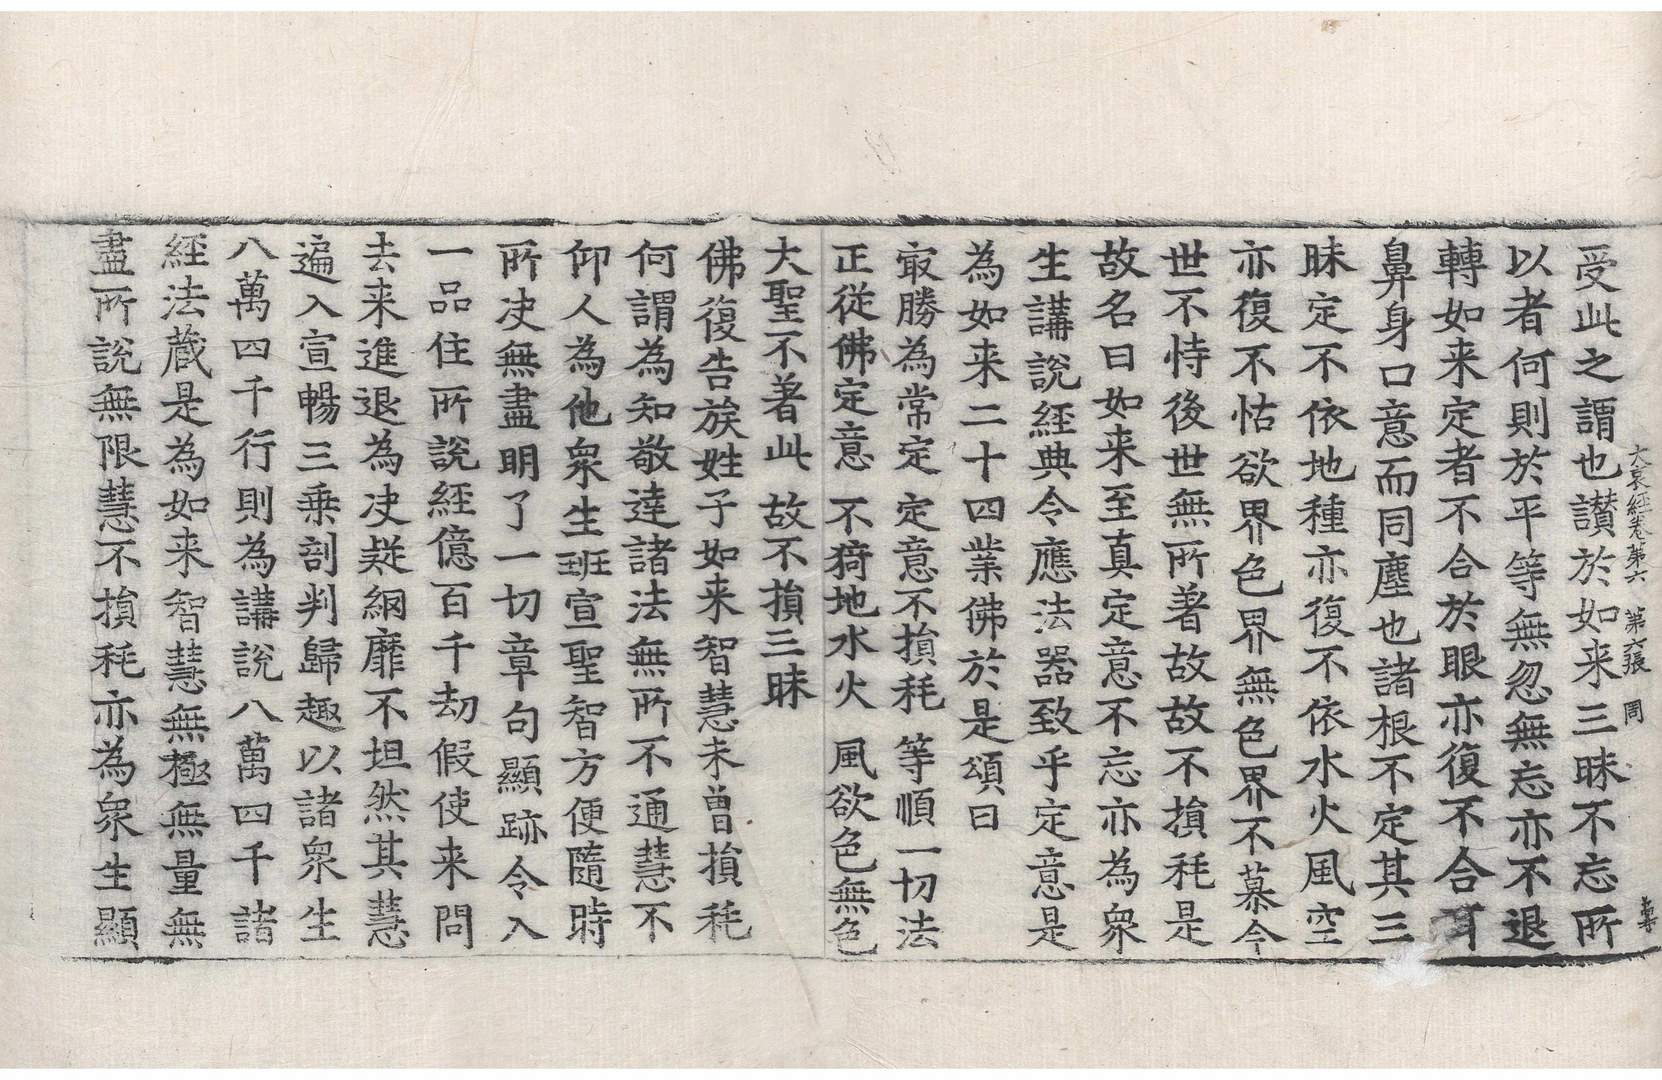 大哀經卷第六　第六張　周
受此之謂也讃於如来三昧不忘所
以者何則於平等無忽無忘亦不退
轉如来定者不合於眼亦復不合耳
鼻身口意而同塵也諸根不定其三
昧定不依地種亦復不依水火風空
亦復不怙欲界色界無色界不慕今
世不恃後世無所著故故不損秏是
故名曰如来至真定意不忘亦為衆
生講說經典令應法器致乎定意是
為如来二十四業佛於是頌曰
㝡勝為常定　定意不損秏　等順一切法
正從佛定意　不猗地水火　風欲色無色
大聖不著此　故不損三昧
佛復告族姓子如来智慧未曽損秏
何謂為知敬達諸法無所不通慧不
仰人為他衆生班宣聖智方便隨時
所决無盡明了一切章句顯跡令入
一品住所說經億百千劫假使来問
去来進退為决疑網靡不坦然其慧
遍入宣暢三乗剖判歸趣以諸衆生
八萬四千行則為講說八萬四千諸
經法蔵是為如来智慧無極無量無
盡所說無限慧不損秏亦為衆生顯